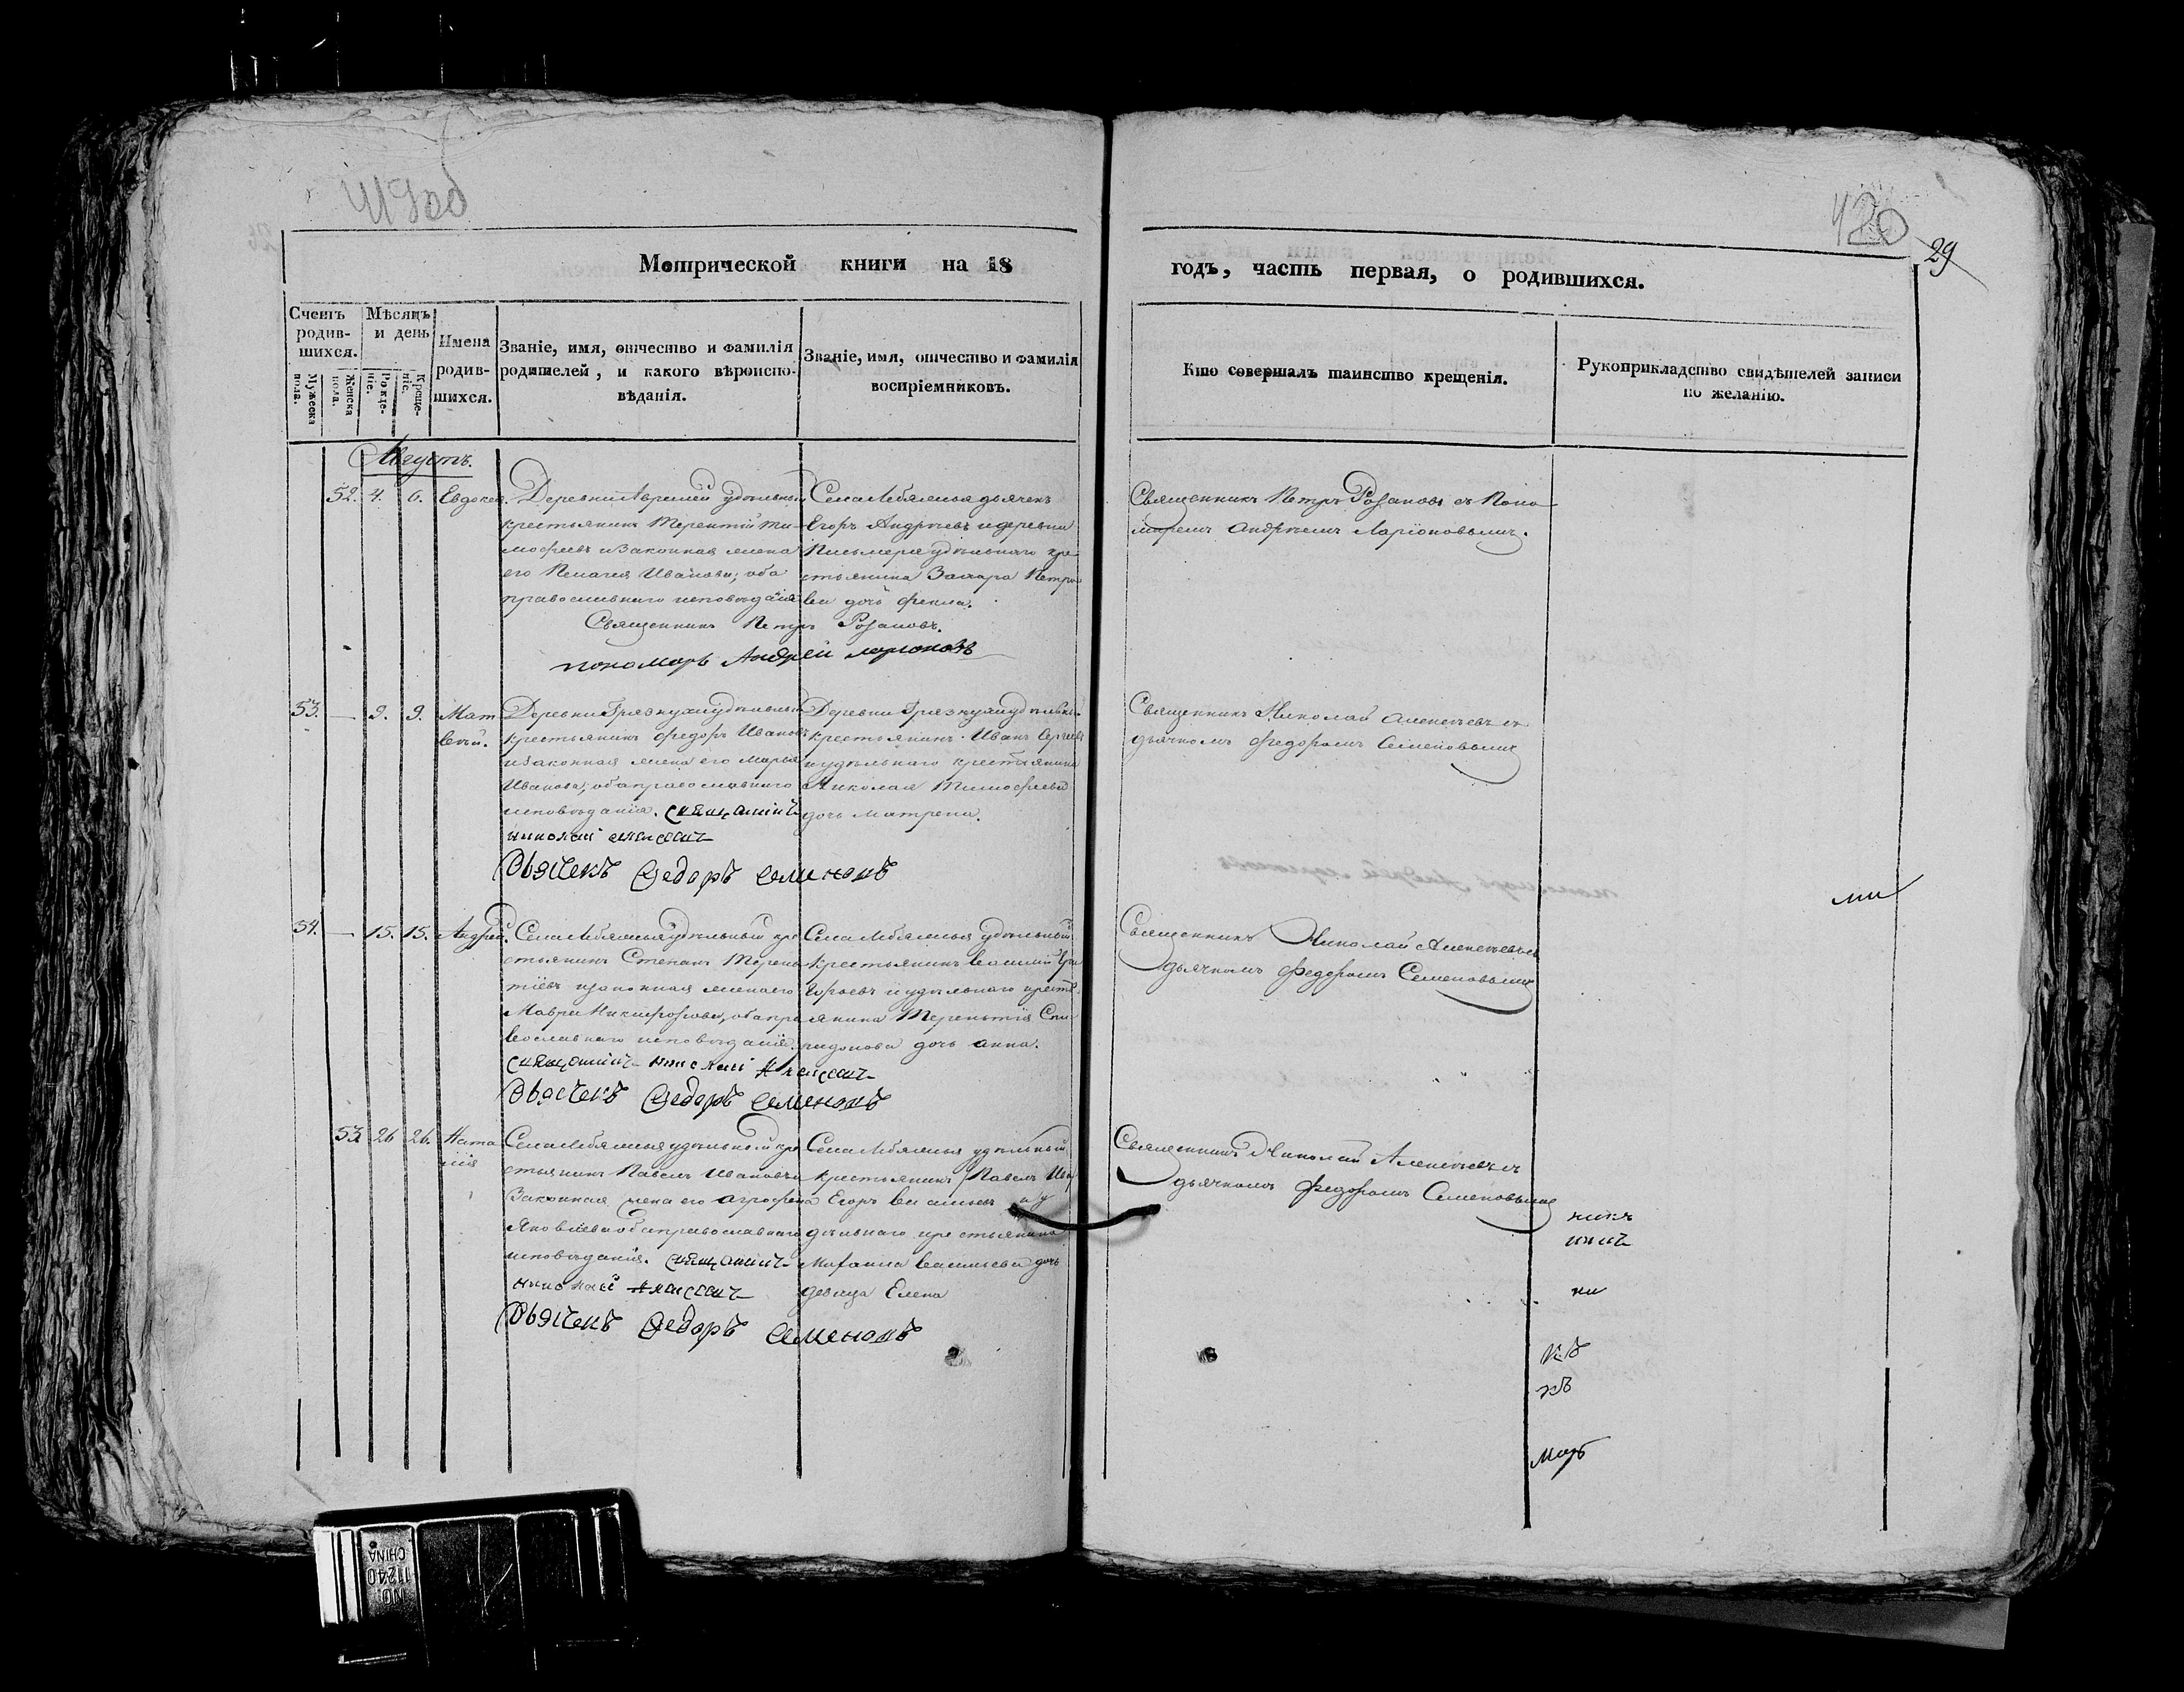 420
29
Метрической книги на 18
годъ, часть первая, о родившихся.
Счетъ родив-шихся.
Мужеска пола.
Женска пола.
Мѣсяцъ и день
Рожде-ніе.
Креще-ніе.
Имена родив-шихся.
Званіе, имя, отчество и фамилія родителей, и какого вѣроиспо-вѣданія.
Званіе, имя, отчество и фамилія воспріемниковъ.
Кто совершалъ таинство крещенія.
Рукоприкладство свидѣтелей записи по желанію.
Августъ.
52. 4. 6. Евдокея.
Деревни удѣльный
крестьянинъ Терентій Ти-
мофеевъ и законная жена
его Пелагея Иванова; оба
православнаго исповѣданія
Села Лебяжья дьячекъ
Егоръ Андреевъ и деревни
удѣльнаго кре-
стьянина Захара Петро
ва дочь Фекла.
Священникъ Петръ Розановъ.
пономарь Андрей Ларионовъ
Священникъ Петръ Розановъ съ Поно-
маремъ Андреемъ Ларіоновымъ.
53. — 9. 9. Мат
вѣй.
Деревни Грязнухи удѣльный
крестьянинъ Федоръ Ивановъ
и законная жена его Марья
Иванова; оба православнаго
исповѣданія. Священникъ
Николай Алексеевъ
Дьячекъ Федоръ Семеновъ
Деревни Грязнухи удѣльный
крестьянинъ Иванъ Сергѣевъ
и удѣльнаго крестьянина
Николая Тимофеева
дочь Матрена.
Священникъ Николай Алексѣевъ съ
дьячкомъ Федоромъ Семеновымъ
54. — 15. 15. Андрей.
Села Лебяжья удѣльный кре
стьянинъ Степанъ Терень
тіевъ и законная жена его
Мавра Никифорова, оба пра
вославнаго исповѣданія.
Священникъ Николай Алексеевъ
Дьячекъ Федоръ Семеновъ
Села Лебяжья удѣльный
крестьянинъ Василий Гри
горьевъ и удѣльнаго кресть
янина Терентія Спи
ридонова дочь Анна.
Священникъ Николай Алексѣевъ съ
дьячкомъ Федоромъ Семеновымъ
53. 26 26. Ната
лія
Села Лебяжья удѣльной кре
стьянинъ Павелъ Ивановъ и
Законная жена его Агрофена
Яковлева оба православнаго
исповѣданія. Священникъ
Николай Алексеевъ
Дьячекъ Федоръ Семеновъ
Села Лебяжья удѣльный
крестьянинъ
Егоръ и у
дѣльнаго крестьянина
Васильева дочь
девица Елена
Священникъ Николай Алексѣевъ съ
дьячкомъ Федоромъ Семеновымъ
NO. 11240
CHINA